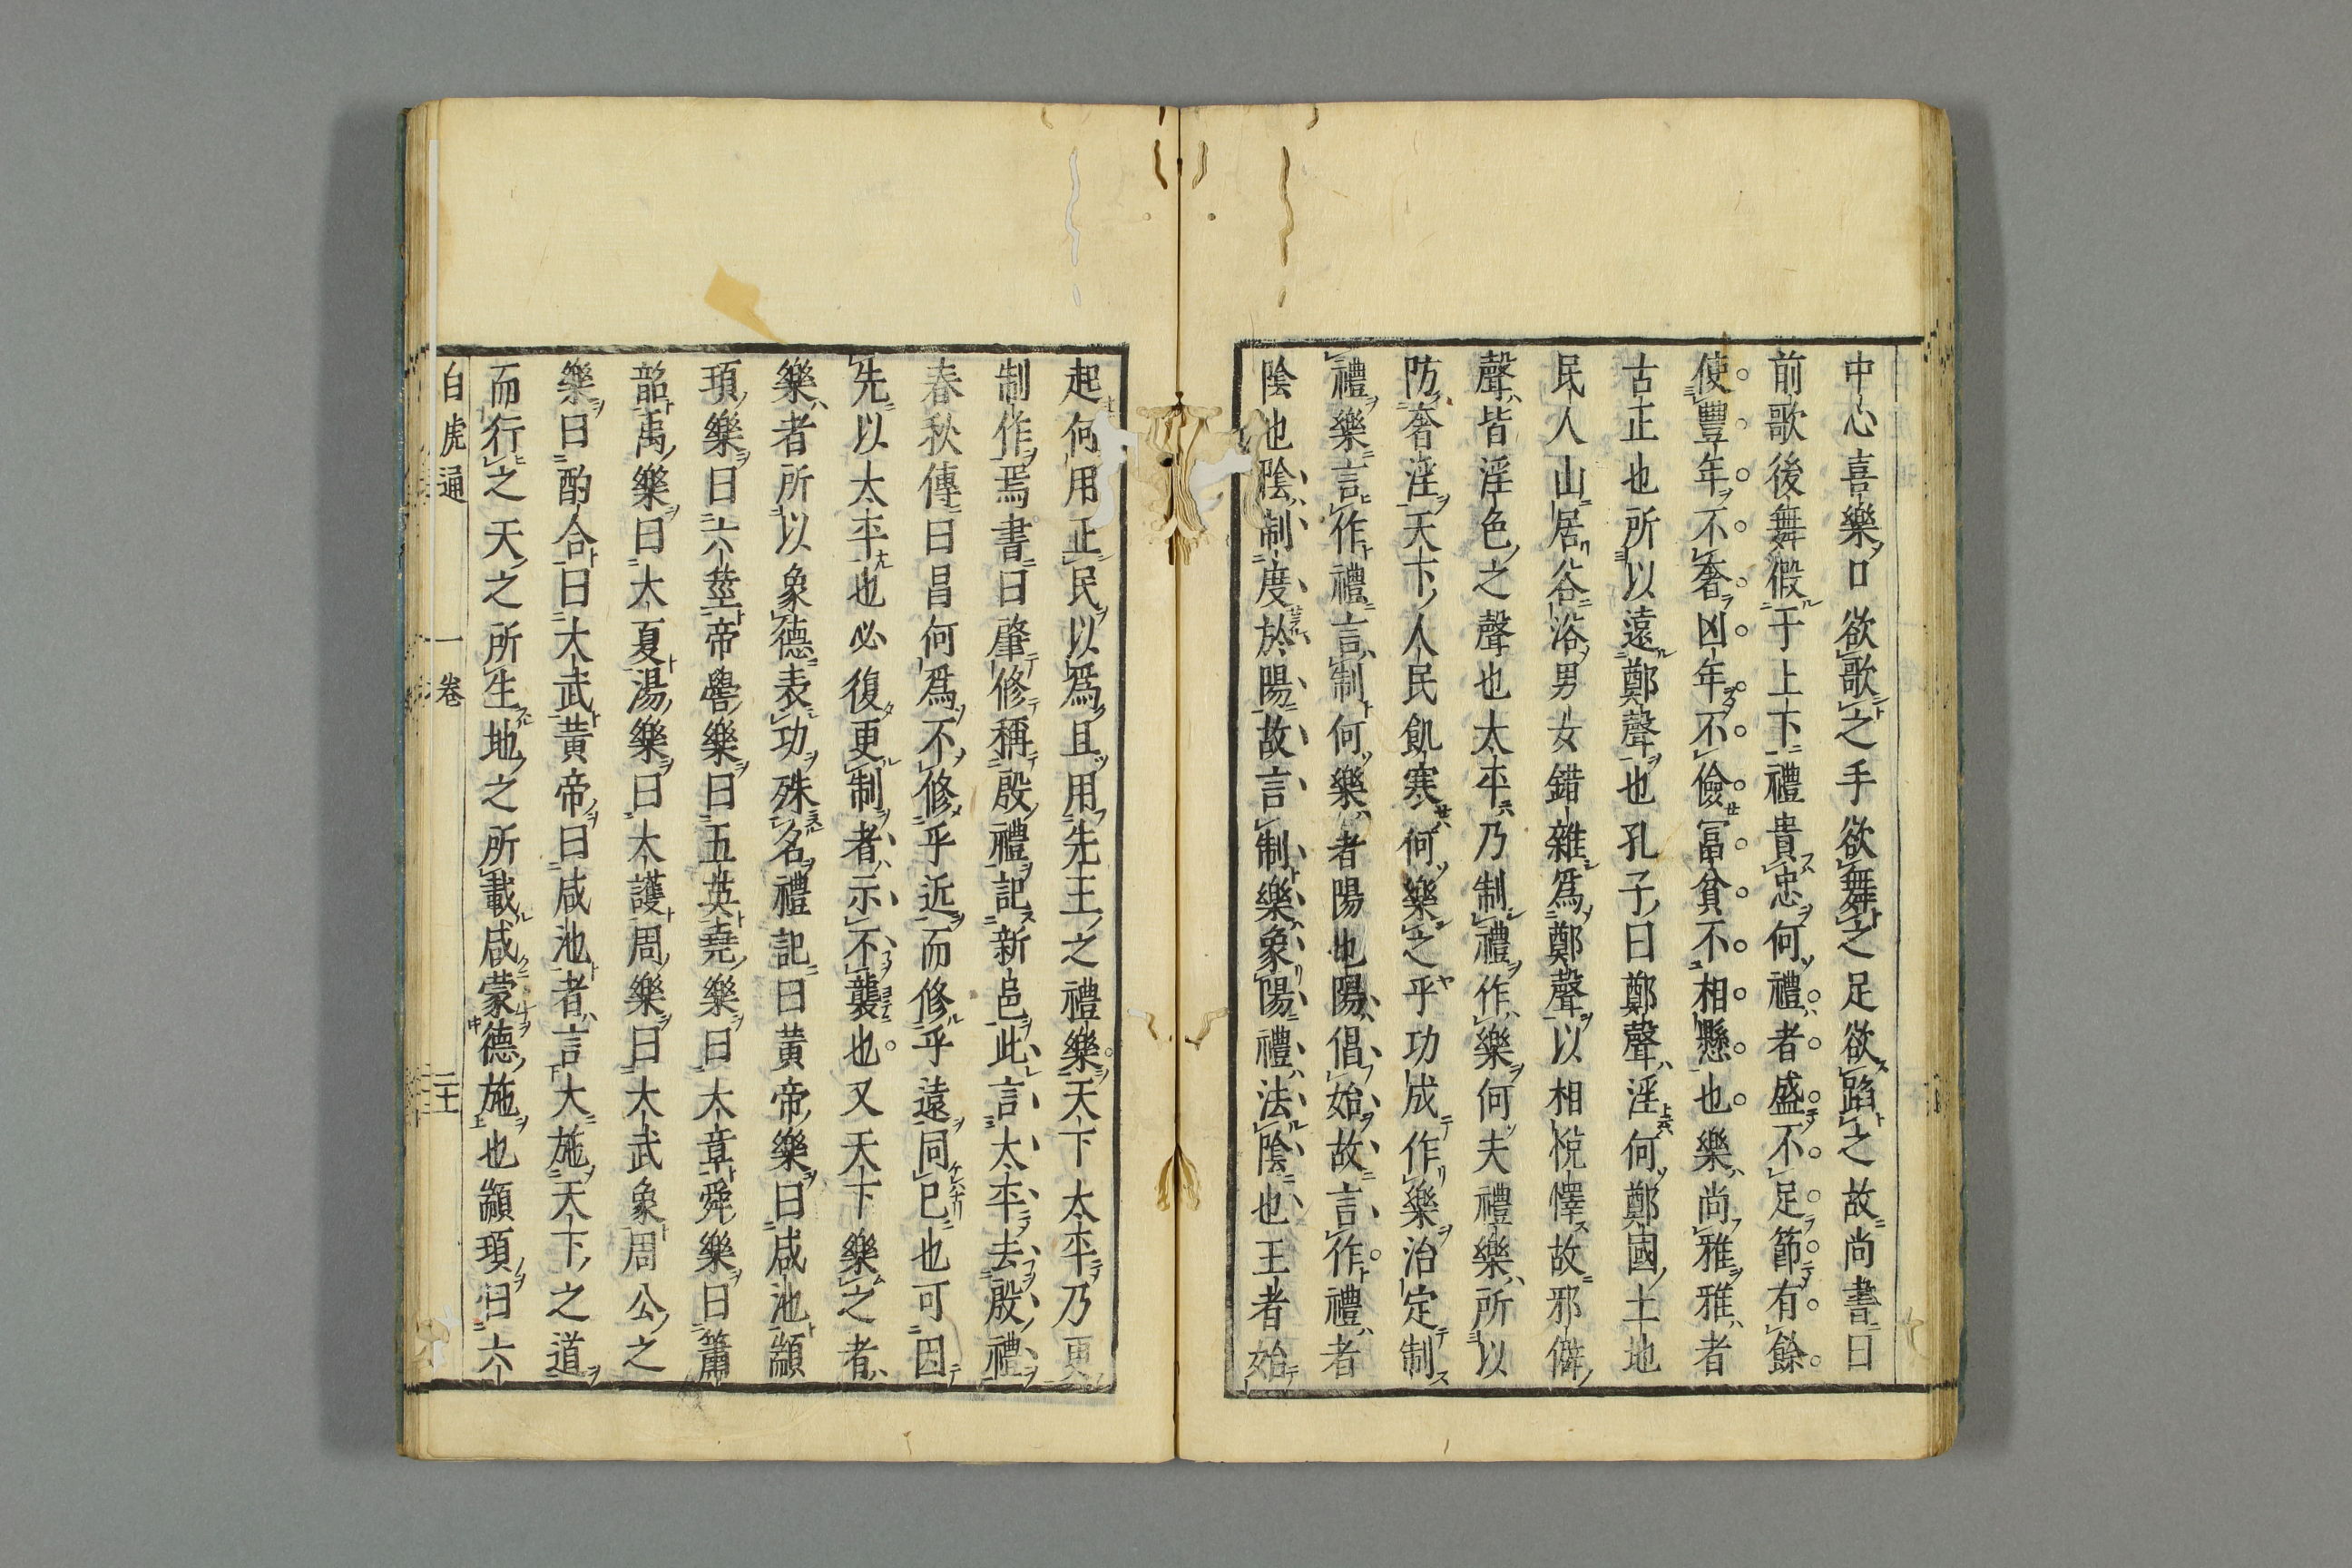 中心喜樂口欲歌之手欲舞之足欲蹈之故尚書曰
前歌後舞假于上下禮貴忠何禮者盛不足節有餘
使豐年不奢凶年不儉冨貧不相懸也樂尚雅雅者
古正也所以遠鄭聲也孔子曰鄭聲淫何鄭國土地
民人山居谷浴男女錯雜爲鄭聲以相悅懌故邪僻
聲皆淫色之聲也太平乃制禮作樂何夫禮樂所以
防奢淫天下人民飢寒何樂之乎功成作樂治定制
禮樂言作禮言制何樂者陽也陽倡始故言作禮者
陰也陰制度於陽故言制樂象陽禮法陰也王者始
起何用正民以爲且用先王之禮樂天下太平乃更
制作焉書曰肇修稱殷禮記新邑此言太平去殷禮
春秋傳曰昌何爲不修乎近而修乎遠同已也可因
先以太平也必復更制者示不襲也又天下樂之者
樂者所以象德表功殊名禮記曰黃帝樂曰咸池顓
頊樂曰六莖帝嚳樂曰五英堯樂曰大章舜樂曰簫
韶禹樂曰大夏湯樂曰大護周樂曰大武象周公之
樂曰酌合曰大武黃帝曰咸池者言大施天下之道
而行之天之所生地之所載咸蒙德施也顓頊曰六
白虎通 一卷 二十